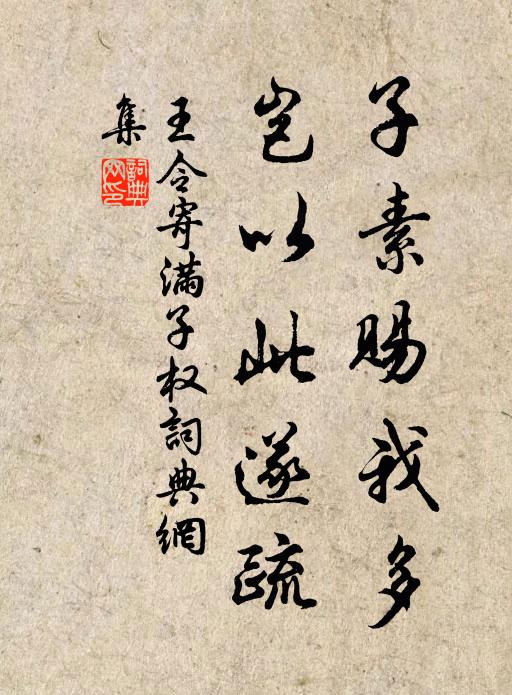 子素賜我多
豈以此遂疏
王令寄滿子权詞典網
集
詞典
网印